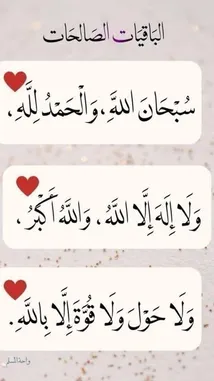 البَاقِيَات الصَالِحَات
سُبْحَانَ اللَّهِ، وَالْحَمْدُ لِلَّهِ،
وَلَا إِلَهَ إِلَّا اللَّهُ، وَاللَّهُ أَكْبَرُ،
وَلَا حَوْلَ وَلَا قُوَّةَ إِلَّا بِاللَّهِ.